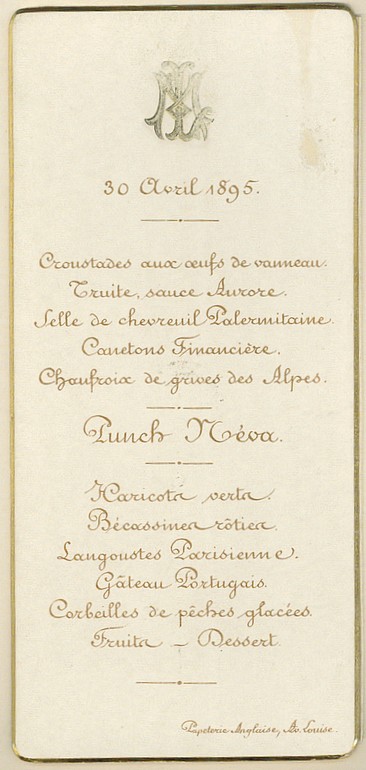 30 Avril 1895.
Croustades aux œufs de vanneau.
Truite, sauce Aurore.
Selle de chevreuil Palermitaine.
Canetons Financière.
Chaufroix de grives des Alpes.
Punch Néva.
Haricots verts.
Bécassines rôties.
Langoustes Parisienne.
Gâteau Portugais.
Corbeilles de pêches glacées.
Fruits – Dessert.
Papeterie Anglaise, Av. Louise.